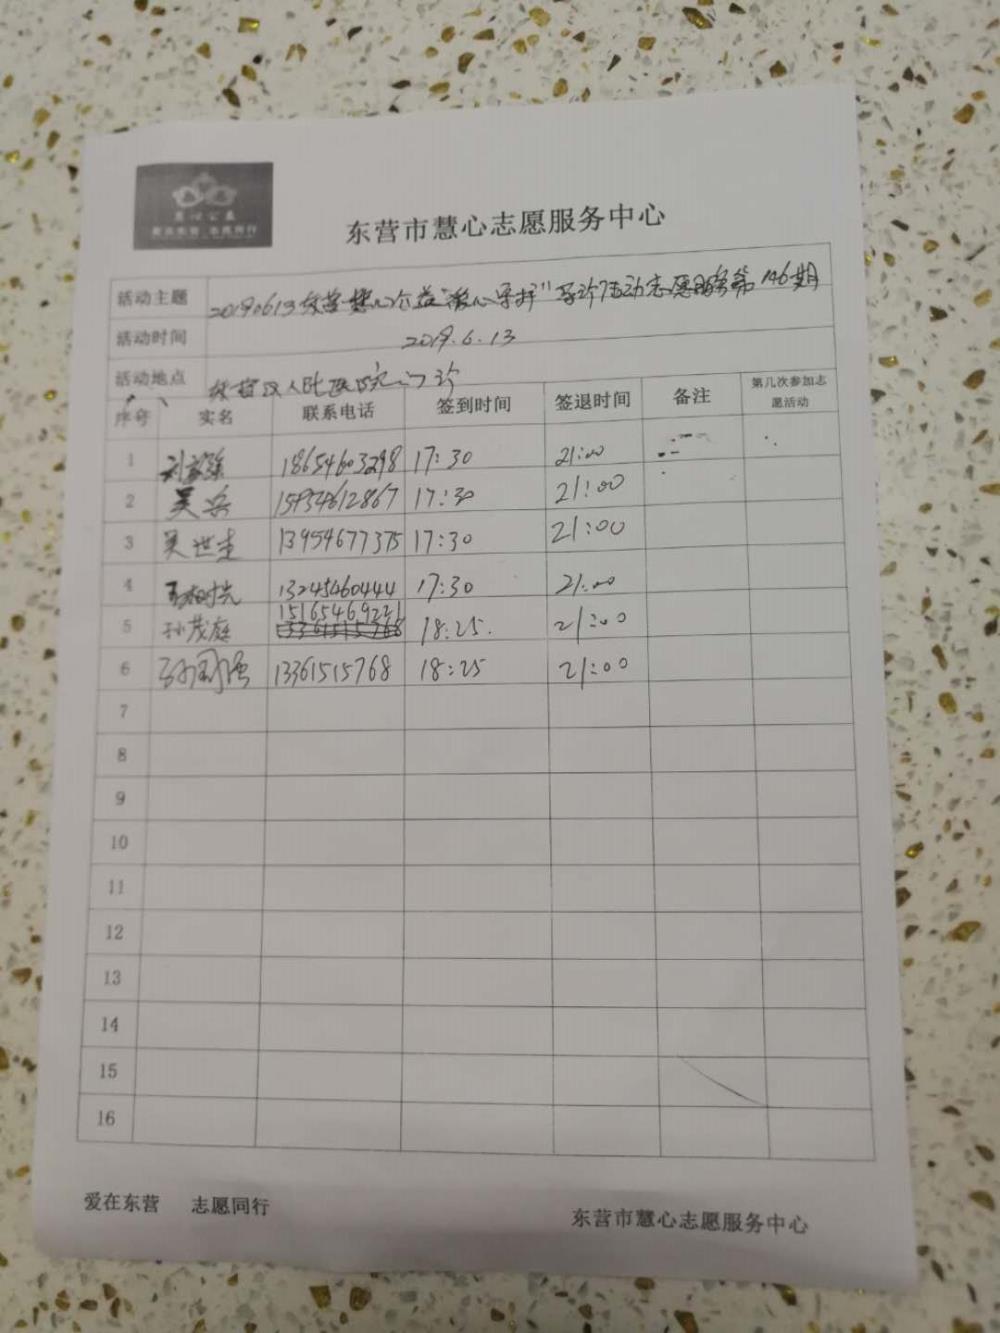 慧心公益
爱在东营 志愿同行
东营市慧心志愿服务中心
活动主题 20190613东营慧心公益"爱心导护"导诊活动志愿服务第146期
活动时间 2019.6.13
活动地点 东营区人民医院门诊
序号 实名 联系电话 签到时间 签退时间 备注 第几次参加志愿活动
1 刘 18654603298 17:30 21:00
2 吴岳 15954612867 17:30 21:00
3 吴世圭 13954677375 17:30 21:00
4 13245460444 17:30 21:00
5 孙茂庭 15165469221 18:25. 21:00
6 13361515768 18:25 21:00
7
8
9
10
11
12
13
14
15
16
爱在东营 志愿同行
东营市慧心志愿服务中心